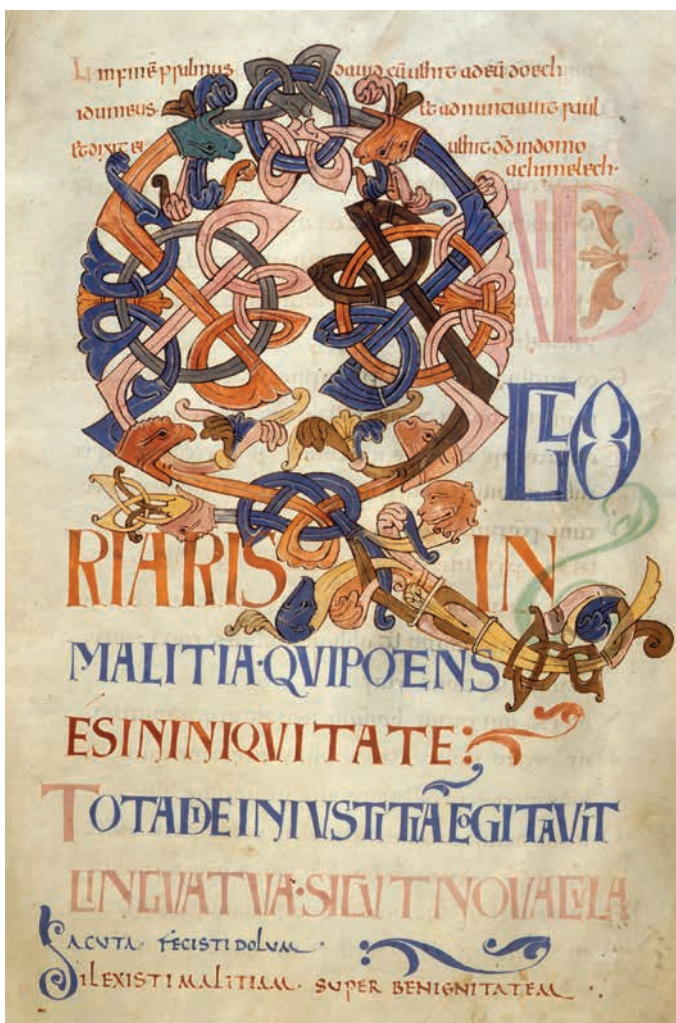 In finē psalmus dauid cū uenit ad eū doech
idumeus Et adnunciauit saul
Et dixit ei uenit dd in domo
achimelech·
QVID
GLO
RIARIS IN
MALITIA·QVI POTENS
ES IN INIQVITATE:
TOTA DIE INIVSTITIĀ COGITAVIT
LINGVA TVA·SICVT NOVACVLA
ACVTA· FECISTI DOLVM·
DILEXISTI MALITIAM· SUPER BENIGNITATEM·